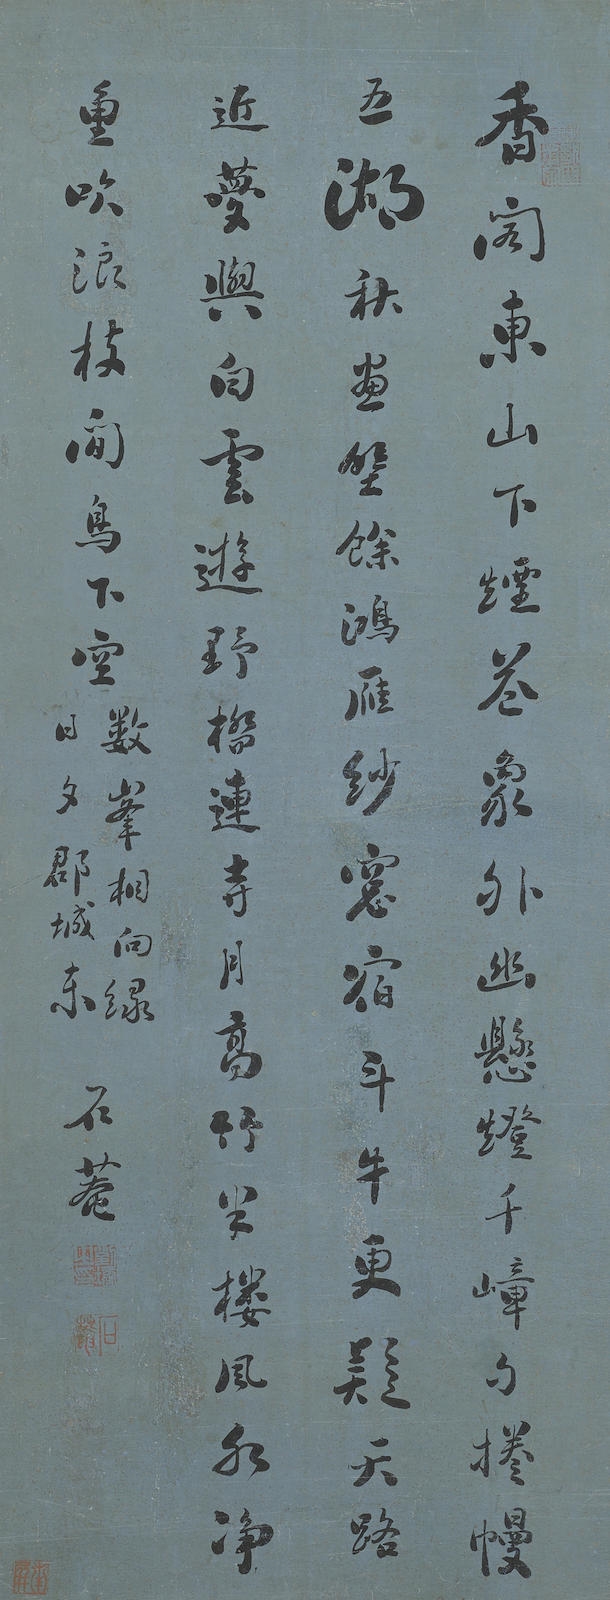 香閣東山下煙花象外幽懸燈千嶂夕捲幔
五湖秋畫壁餘鴻雁紗窓宿斗牛更疑天路
近夢與白雲遊野橋連寺月高竹半樓風水淨
魚吹浪枝間鳥下空
數峯相向綠
日夕郡城東
石菴
石菴